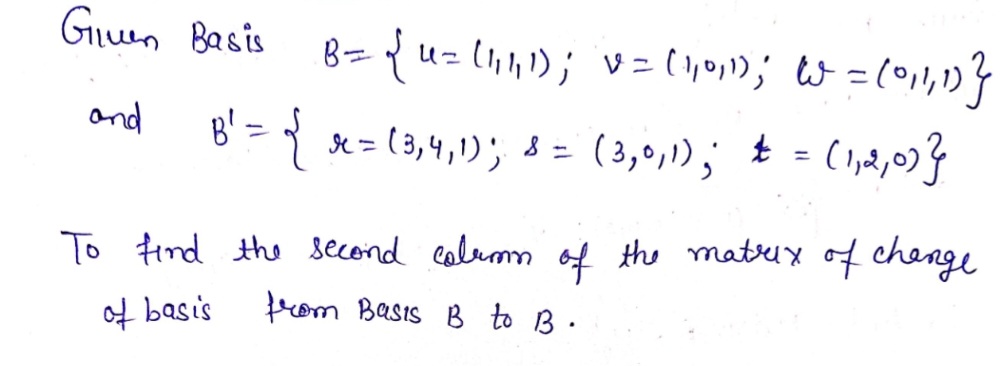 Given Basis B = { u = (1,1,1) ; v = (1,0,1) ; w = (0,1,1) }
and B' = { r = (3,4,1) ; s = (3,0,1) ; t = (1,2,0) }
To find the second column of the matrix of change
of basis from Basis B to B .